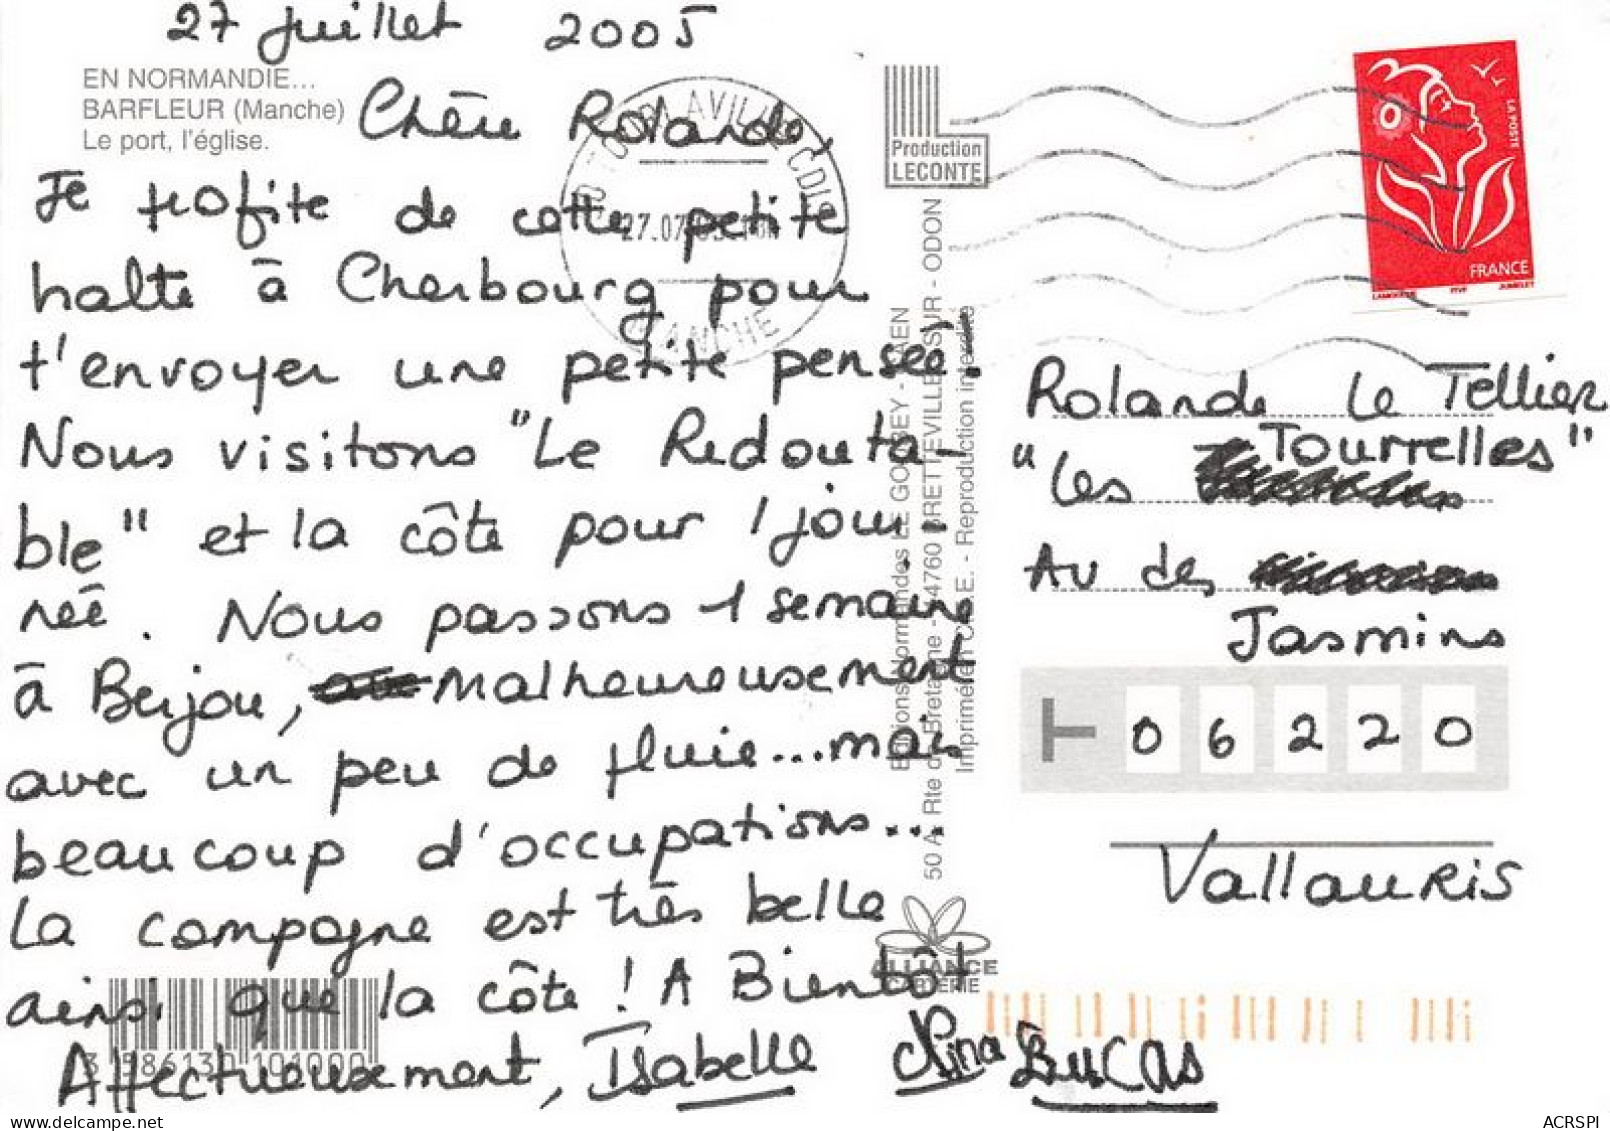 27 juillet 2005
EN NORMANDIE...
BARFLEUR (Manche)
Le port, l'église.
Chère Rolande,
Je profite de cette petite
halte à Cherbourg pour
t'envoyer une petite pensée.
Nous visitons "Le Redouta-
ble" et la côte pour 1 jour-
née. Nous passons 1 semaine
à Berjou, malheureusement
avec un peu de pluie...mais
beaucoup d'occupations...
La campagne est très belle
ainsi que la côte ! A Bientôt
Affectueusement, Isabelle Nina BUCAS
3 586130 101000
27.07
MANCHE
Production
LECONTE
Editions Normandes LE GOUBEY - CAEN
50 A, Rte de Bretagne - 14760 BRETTEVILLE-SUR-ODON
Imprimé en C.E.E. - Reproduction interdite
ALLIANCE
CARTERIE
LA POSTE
FRANCE
LAMOUCHE ITVF JUMELET
Rolande Le Tellier
"Les Tourrelles"
Av des
Jasmins
06220
Vallauris
ACRSPI